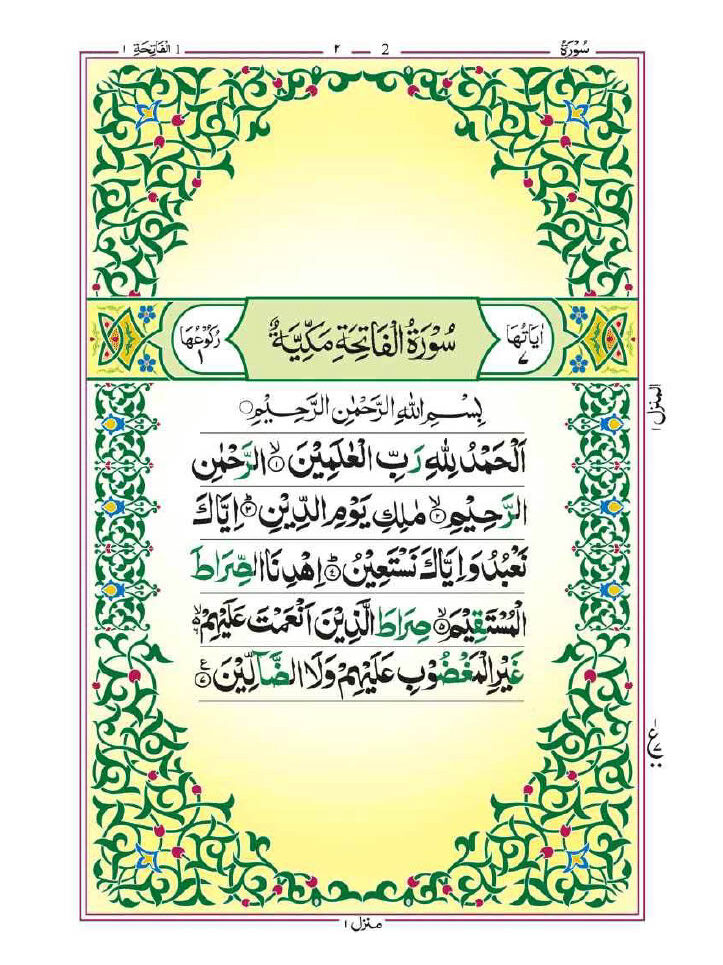 سُوْرَةُ 2 ٢ 1 اَلْفَاتِحَةِ ١
اٰيَاتُهَا ٧ سُوْرَةُ الْفَاتِحَةِ مَكِّيَّةٌ رُكُوْعُهَا ١
بِسْمِ اللّٰهِ الرَّحْمٰنِ الرَّحِيْمِ
اَلْحَمْدُ لِلّٰهِ رَبِّ الْعٰلَمِيْنَ ۙ‏﴿١﴾ الرَّحْمٰنِ
الرَّحِيْمِ ۙ‏﴿٢﴾ مٰلِكِ يَوْمِ الدِّيْنِ ؕ‏﴿٣﴾ اِيَّاكَ
نَعْبُدُ وَاِيَّاكَ نَسْتَعِيْنُ ؕ‏﴿٤﴾ اِهْدِنَا الصِّرَاطَ
الْمُسْتَقِيْمَ ۙ‏﴿٥﴾ صِرَاطَ الَّذِيْنَ اَنْعَمْتَ عَلَيْهِمْ ۙ۬‏﴿٦﴾
غَيْرِ الْمَغْضُوْبِ عَلَيْهِمْ وَلَا الضَّآلِّيْنَ‏﴿٧﴾ ع
المنزل ١
ع ٧
منزل ١